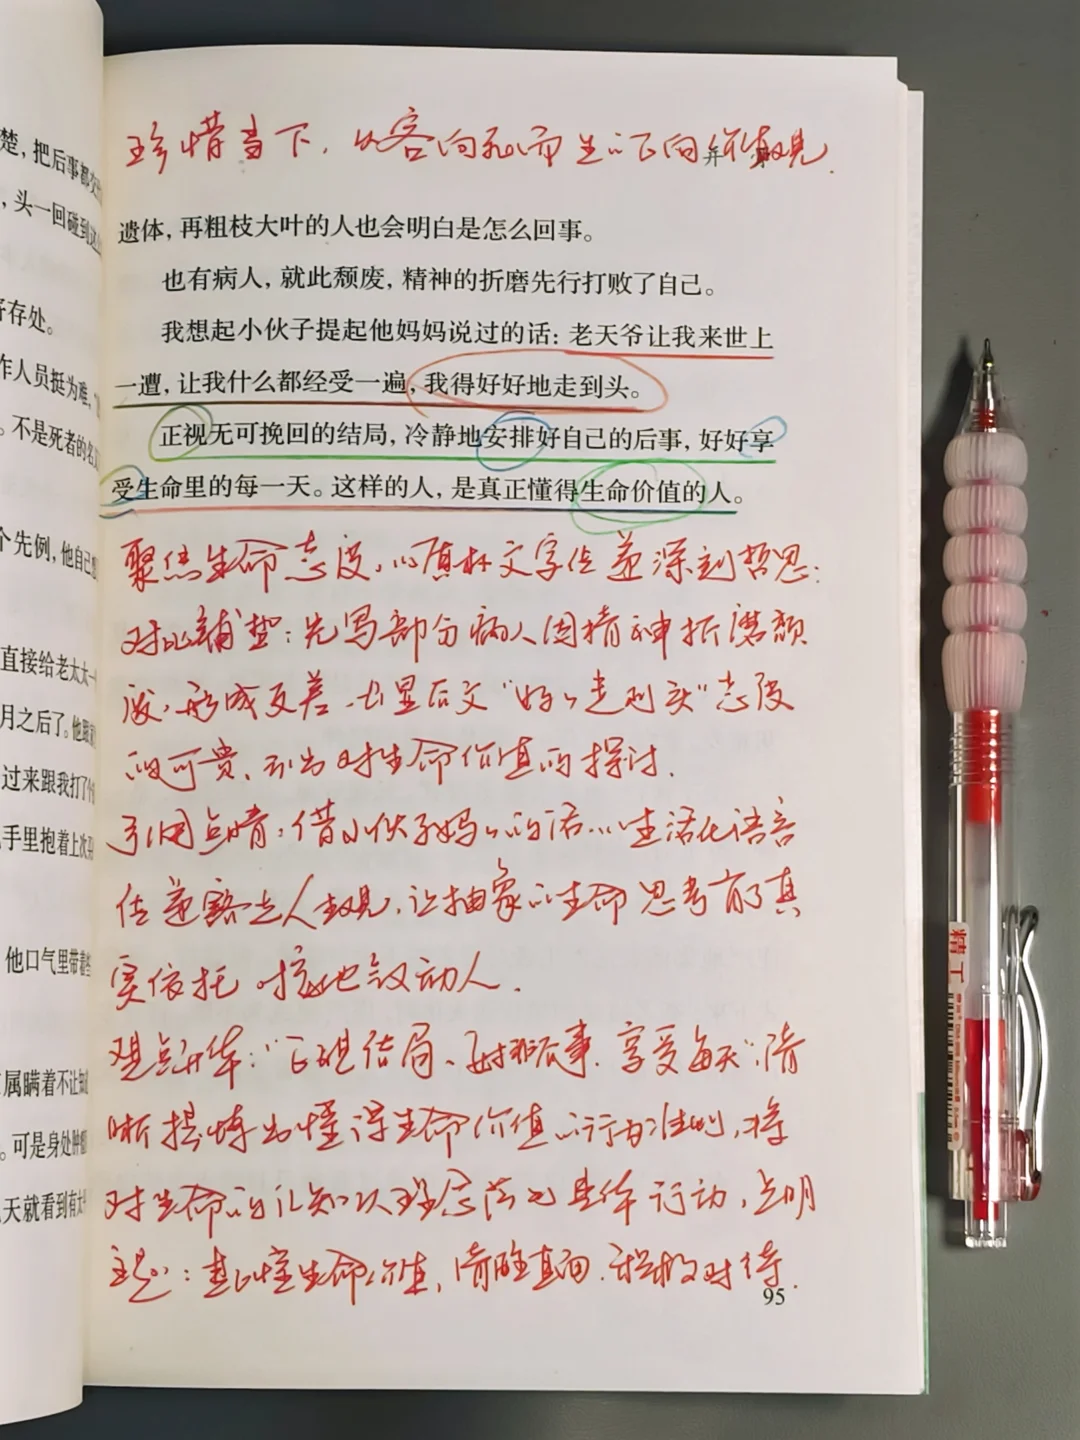 楚，把后事都交
，头一回碰到这
存存处。
作人员挺为难，
。不是死者的名
个先例，他自己
直接给老太太一
月之后了。他跟
过来跟我打了个
手里抱着上次
他口气里带着些
属瞒着不让知
。可是身处肿瘤
天就看到有太
珍惜当下，从容向死而生的正向价值观.
遗体，再粗枝大叶的人也会明白是怎么回事。
也有病人，就此颓废，精神的折磨先行打败了自己。
我想起小伙子提起他妈妈说过的话：老天爷让我来世上
一遭，让我什么都经受一遍，我得好好地走到头。
正视无可挽回的结局，冷静地安排好自己的后事，好好享
受生命里的每一天。这样的人，是真正懂得生命价值的人。
聚焦生命态度，以质朴文字传递深刻哲思：
对比铺垫：先写部分病人因精神折磨颓
废，形成反差，凸显后文“好好走到头”态度
的可贵，引出对生命价值的探讨.
引用点睛，借小伙子妈妈的话，以生活化语言
传递豁达人生观，让抽象的生命思考有了真
实依托，接地气又动人.
观点升华：“正视结局、安排后事、享受每天”，清
晰提炼出懂得生命价值的行为准则，将
对生命的认知从理念落地具体行动，点明
主题：真正懂生命价值，清醒直面、积极对待.
95
精工